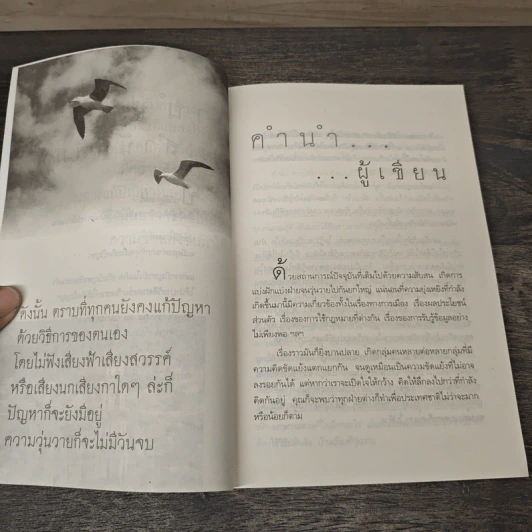 ดังนั้น ตราบที่ทุกคนยังคงแก้ปัญหา
ด้วยวิธีการของตนเอง
โดยไม่ฟังเสียงฟ้าเสียงสวรรค์
หรือเสียงนกเสียงกาใดๆ ล่ะก็
ปัญหาก็จะยังมีอยู่
ความวุ่นวายก็จะไม่มีวันจบ
คำนำ...
...ผู้เขียน
ด้วยสถานการณ์ปัจจุบันที่เต็มไปด้วยความสับสน เกิดการ
แบ่งฝักแบ่งฝ่ายจนวุ่นวายไปกันยกใหญ่ แน่นอนที่ความยุ่งเหยิงที่กำลัง
เกิดขึ้นมานี้มีความเกี่ยวข้องทั้งในเรื่องทางการเมือง เรื่องผลประโยชน์
ส่วนตัว เรื่องของการใช้กฎหมายที่ต่างกัน เรื่องของการรับรู้ข้อมูลอย่าง
ไม่เพียงพอ ฯลฯ
เรื่องราวมันก็ยิ่งบานปลาย เกิดกลุ่มคนหลายต่อหลายกลุ่มที่มี
ความคิดขัดแย้งแตกแยกกัน จนดูเหมือนเป็นความขัดแย้งที่ไม่อาจ
ลงรอยกันได้ แต่หากว่าเราจะเปิดใจให้กว้าง คิดให้ลึกลงไปกว่าที่กำลัง
คิดกันอยู่ คุณก็จะพบว่าทุกฝ่ายต่างก็ทำเพื่อประเทศชาติไม่ว่าจะมาก
หรือน้อยก็ตาม